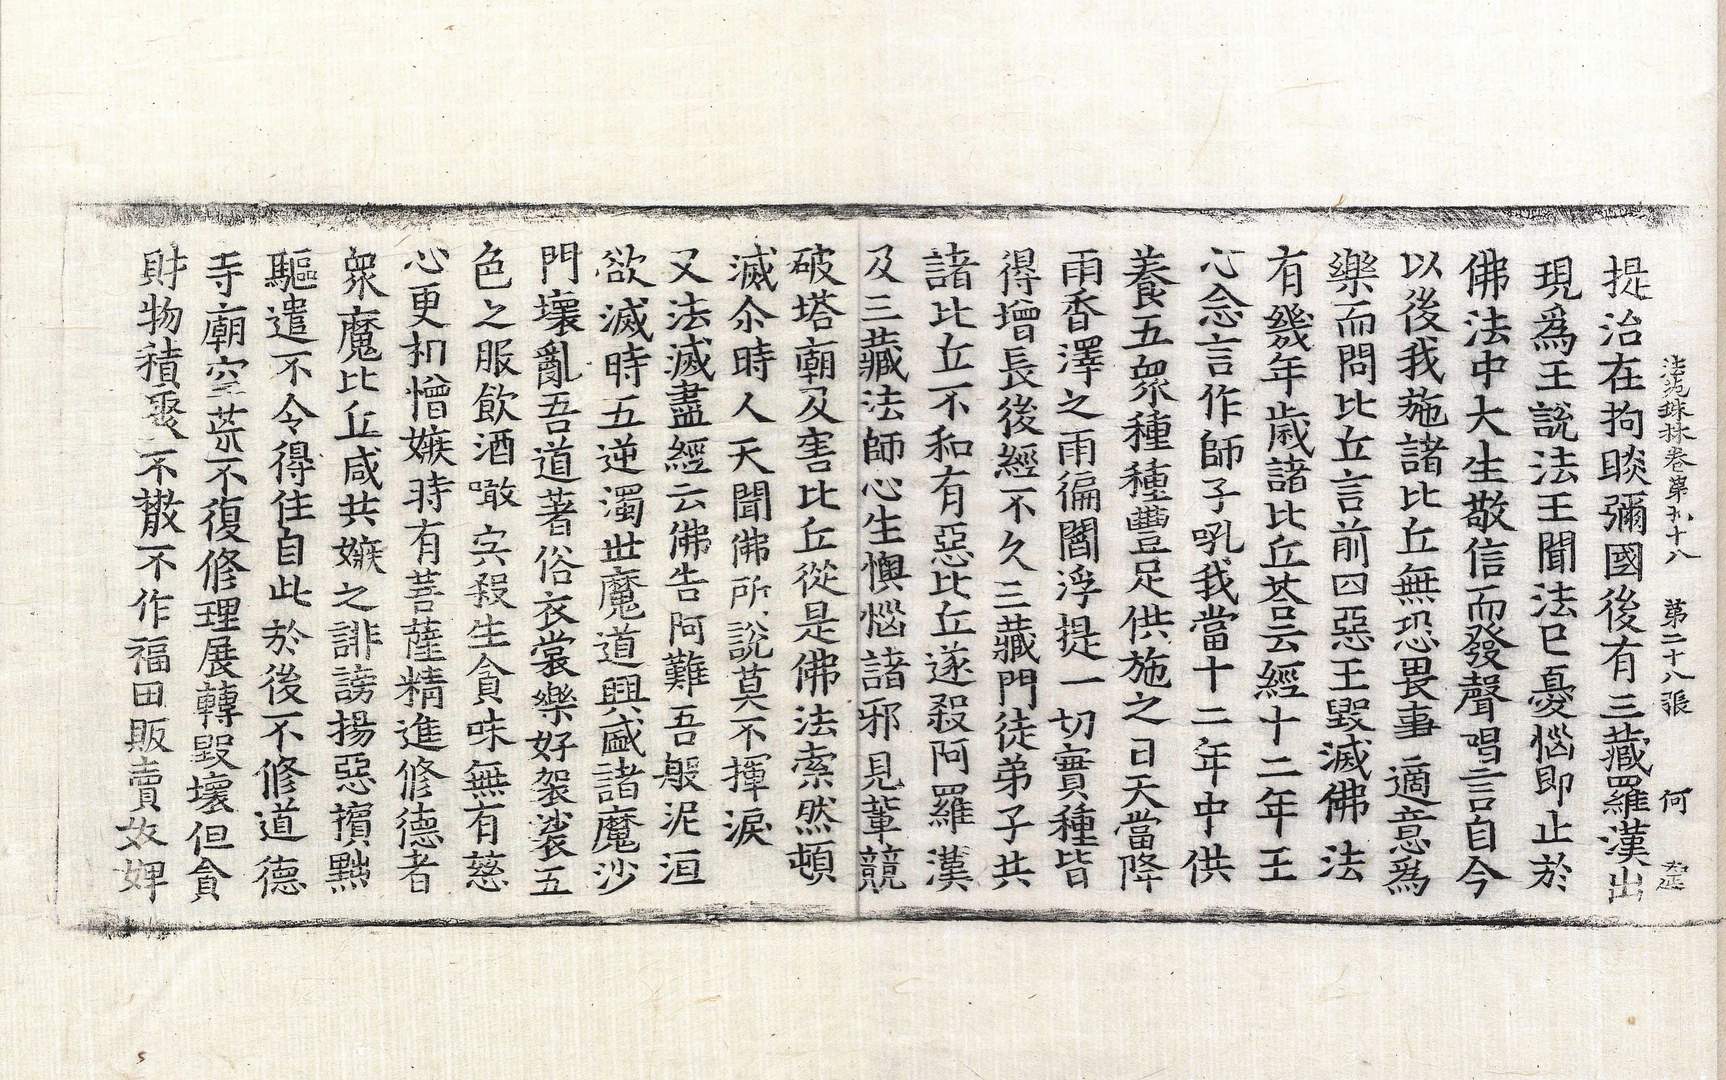 法苑珠林卷第九十八 第二十八張 何
提治在拘睒彌國後有三藏羅漢出
現爲王說法王聞法已憂惱即止於
佛法中大生敬信而發聲唱言自今
以後我施諸比丘無恐畏事適意爲
樂而問比丘言前四惡王毀滅佛法
有幾年歲諸比丘荅云經十二年王
心念言作師子吼我當十二年中供
養五衆種種豐足供施之日天當降
雨香澤之雨徧閻浮提一切實種皆
得增長後經不久三藏門徒弟子共
諸比丘不和有惡比丘遂殺阿羅漢
及三藏法師心生懊惱諸邪見輩競
破塔廟及害比丘從是佛法索然頓
滅尒時人天聞佛所說莫不揮淚
又法滅盡經云佛告阿難吾般泥洹
欲滅時五逆濁世魔道興盛諸魔沙
門壞亂吾道著俗衣裳樂好袈裟五
色之服飲酒噉宍殺生貪味無有慈
心更相憎嫉時有菩薩精進修德者
衆魔比丘咸共嫉之誹謗揚惡擯黜
驅遣不令得住自此於後不修道德
寺廟空荒不復修理展轉毀壞但貪
財物積聚不散不作福田販賣奴婢